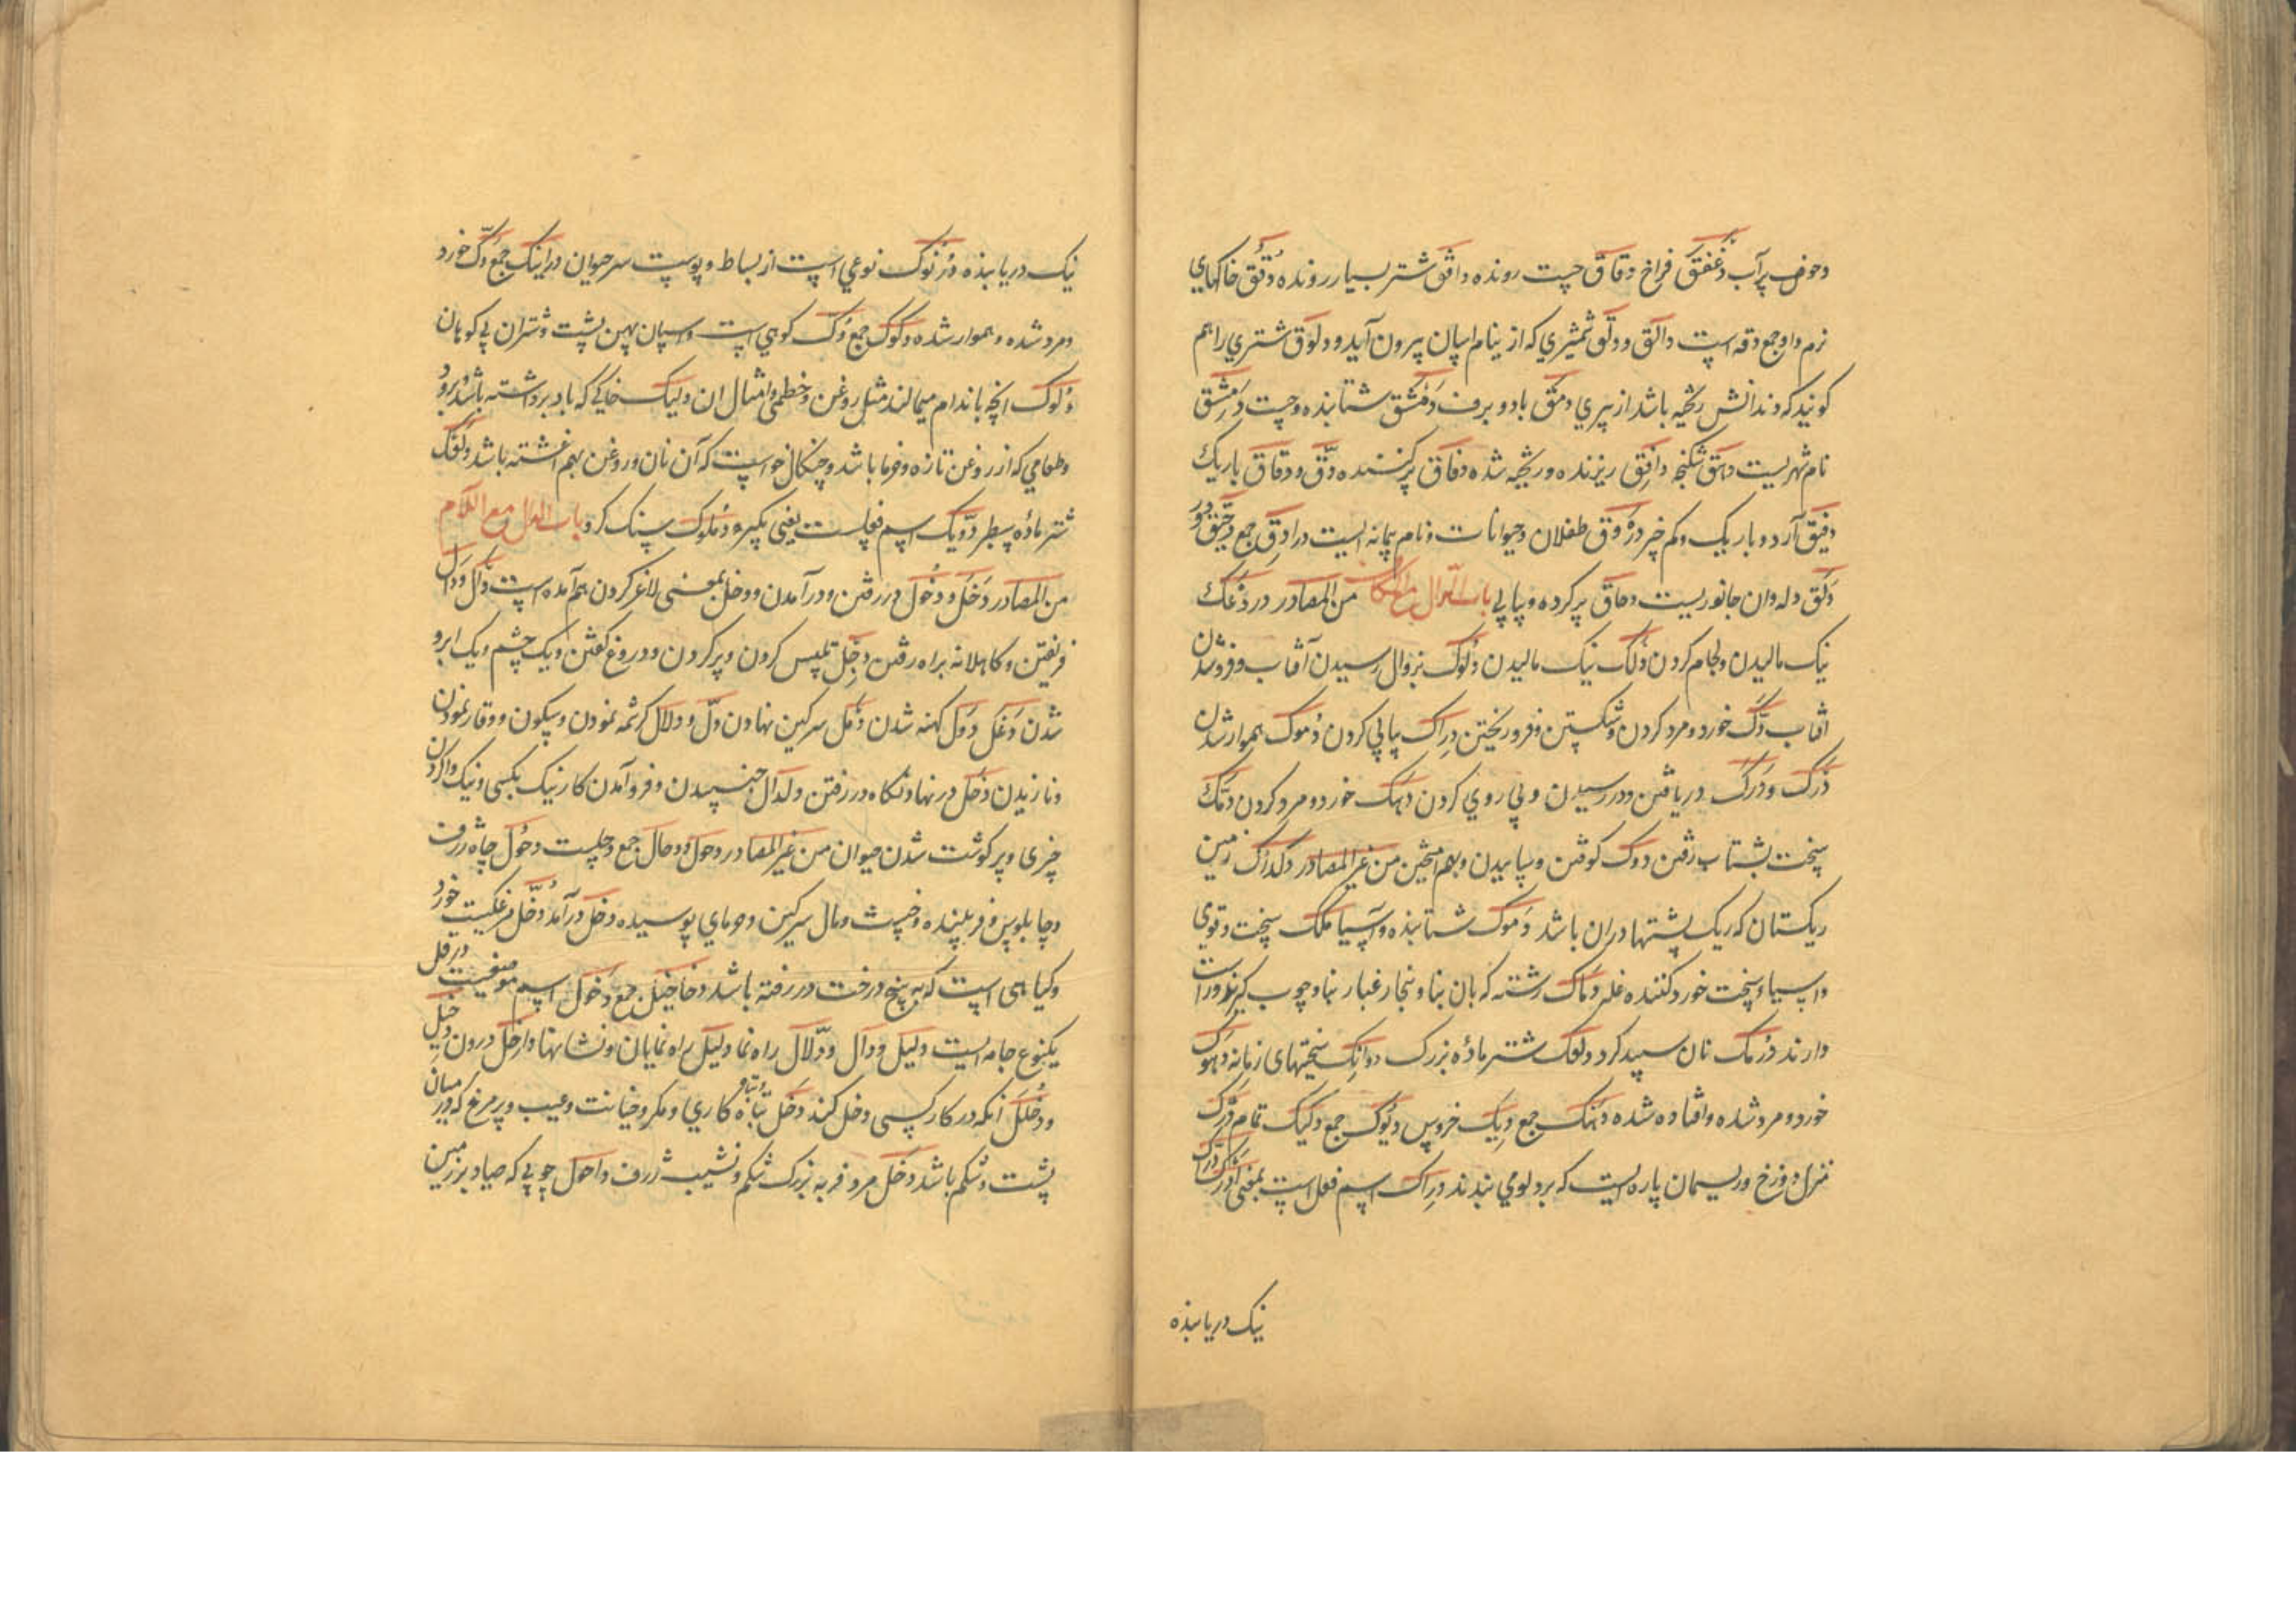 وحوض پر آب دغفق فراخ دفاق چست رونده دافق شتر بسیار رونده دقق خاکهای
نرم و او جمع دقه است دالق و دلق شمشیری که از نیام اسان بیرون آید و دلوق شتری را هم
کویند که دندانش ریخته باشد از پیری دمق باد و برف دمشق شتابنده و چست دمشق
نام شهریست دهق شکنجه دافق ریزنده و ریخته شده دفاق پر کننده دق و دقاق باریک
دقیق آرد و باریک و کم خیر دردق طفلان و حیوانات و نام پیمانه ایست درادق جمع
دلق دله و ان جانوریست دهاق پر کرده و پیاپی باب الدال مع الکاف من المصادر در دعک
نیک مالیدن و لجام کردن دلک نیک مالیدن دلوک بزوال رسیدن آفتاب و فرو شدن
افتاب دک خورد و مرد کردن و شکستن و فرو ریختن دراک پیاپی کردن دموک هموار شدن
درک و درک دریافتن و در رسیدن و پی روی کردن دهک خورد و مرد کردن دمک
سخت بشتاب رفتن دوک کوفتن و سابیدن و بهم امیختن من غیر المصادر دکداک زمین
ریکستان که ریک پشتها دران باشد دموک شتابنده و آسیا دملک سخت و قوی
و اسیا و سخت خورد کننده غله دماک رشته که بان بنا و نجار غبار بنا و چوب کیرند و راست
دارند درمک نان سپید کرد دلعک شتر ماده بزرک دوانک سختیهای زمانه دهوک
خورد و مرد شده و افتاده شده دهک جمع دیک خروس دیوک جمع دکیک تمام درک
منزل دوزخ و ریسمان پاره ایست که بر دلوی بندند دراک اسم فعل است بمعنی ادرک دراک
نیک دریابنده
نیک دریابنده درنوک نوعی است از بساط و پوست سر حیوان درانک جمع دک خورد
و مرد شده و هموار شده دکوک جمع دک کوهی است و اسپان پهن پشت و شتران بی کوهان
دلوک انچه باندام میمالند مثل روغن و خطمی و امثال ان دلیک خاکی که باد برداشته باشد و برد
و طعامی که از روغن تازه و خرما باشد و چنکال خواست که آن نان و روغن بهم اغشته باشد دلعک
شتر ماده سطبر دویک اسم فعلست یعنی بکیر دملوک سنک کرد باب الدال مع اللام
من المصادر دخل و دخول در رفتن و در آمدن و دخل بمعنی لاغر کردن هم آمده است دأل و دال
فریفتن و کاهلانه براه رفتن دجل تلبیس کردن و پر کردن و دروغ کفتن و یک چشم و یک ابرو
شدن دغل دول کهنه شدن دمل سرکین نهادن دل و دلال کرشمه نمودن و سکون و وقار نمودن
و نازیدن دخل در نهاد و نکاه در رفتن و لدال جنبیدن و فرو آمدن کار نیک بکسی و نیک وا کردن
چیزی و پر کوشت شدن حیوان من غیر المصادر دحول و دحال جمع دحلست دحول چاه ژرف
و چابلوس و فریبنده و خبیث دمال سرکین و خرمای پوسیده دخل درآمد دخل مرغکیست خورد
و کیاهی است که به بیخ درخت در رفته باشد دخاخیل جمع دخول اسم موضعیست درقل
یکنوع جامه ایست دلیل و دال و دلال راه نما دلیل راه نمایان و نشانها داخل درون دخیل
و دخلل انکه در کار کسی دخل کند دخل تباه کاری و مکر و خیانت و عیب و پر مرغ که در میان
پشت و شکم باشد دخل مرد فربه بزرک شکم و نشیب ژرف داحول چوبی که صیاد بر زمین